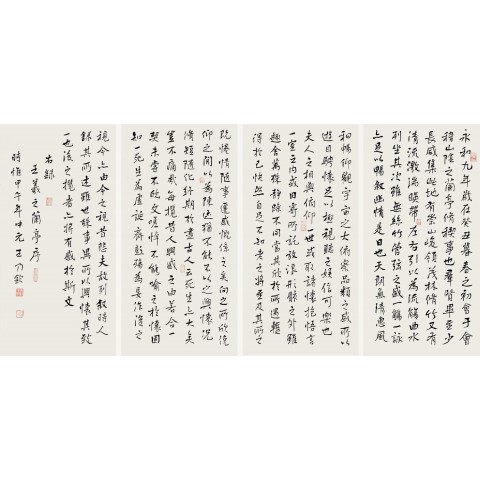 永和九年歲在癸丑暮春之初會于會
稽山陰之蘭亭脩稧事也群賢畢至少
長咸集此地有崇山峻領茂林脩竹又有
清流激湍暎帶左右引以為流觴曲水
列坐其次雖無絲竹管弦之盛一觴一詠
亦足以暢叙幽情是日也天朗氣清惠風
和暢仰觀宇宙之大俯察品類之盛所以
遊目騁懷足以極視聽之娛信可樂也
夫人之相與俯仰一世或取諸懷抱悟言
一室之內或因寄所託放浪形骸之外雖
趣舍萬殊靜躁不同當其欣於所遇暫
得於己快然自足不知老之將至及其所之
既惓情隨事遷感慨係之矣向之所欣俛
仰之間以為陳迹猶不能不以之興懷況
脩短隨化終期於盡古人云死生亦大矣
豈不痛哉每攬昔人興感之由若合一
契未嘗不臨文嗟悼不能喻之於懷固
知一死生為虛誕齊彭殤為妄作後之
視今亦由今之視昔悲夫故叙時人
錄其所述雖世殊事異所以興懷其致
一也後之攬者亦將有感於斯文
右錄
王羲之蘭亭序
時惟甲午年坤元王乃欽